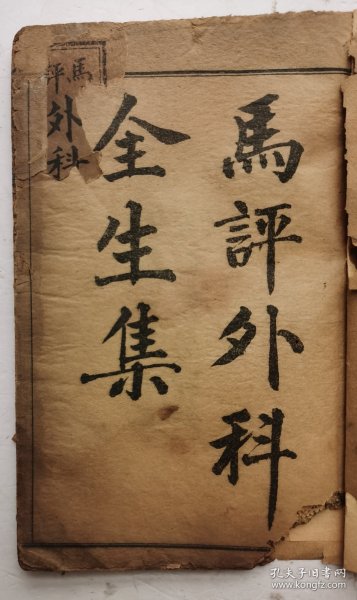 馬評外科
全生集
馬評
外科
孔夫子旧书网
www.kongfz.com